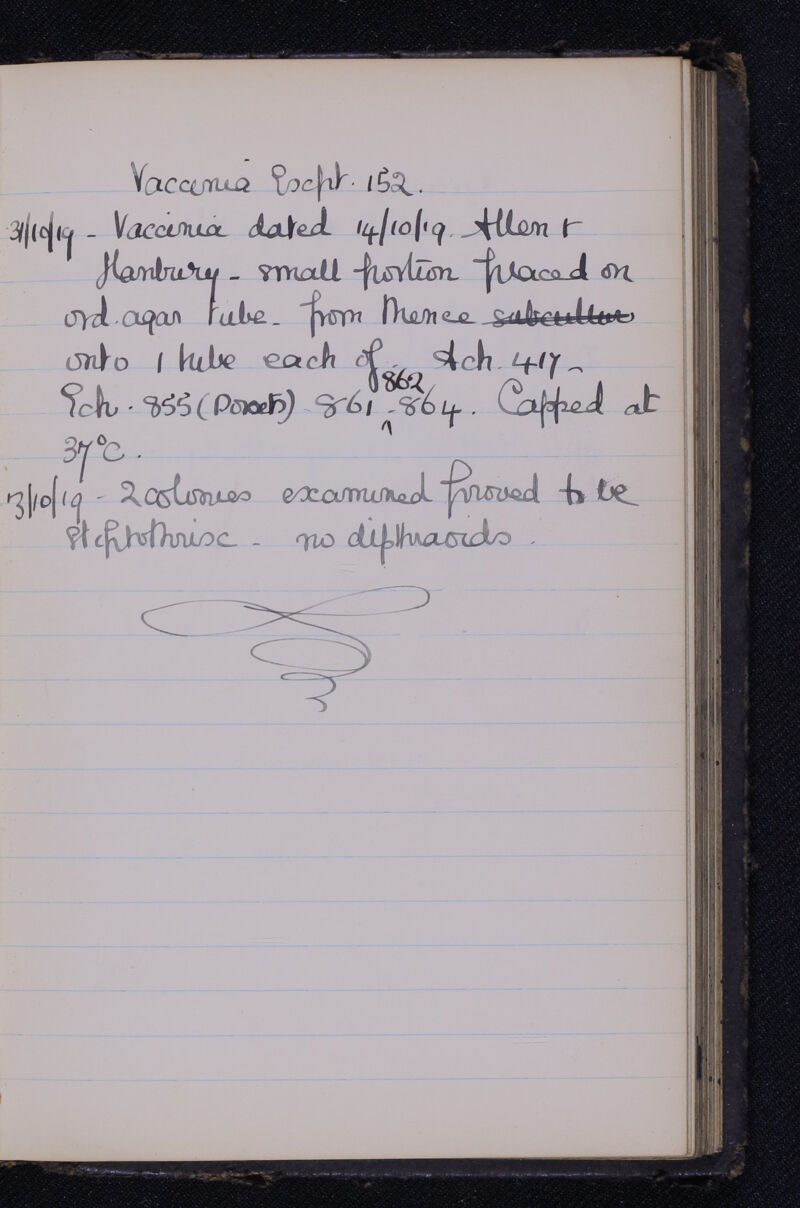 Vaccinia Expt. 152.
31/10/19 - Vaccinia dated 14/10/19. Allen &
Hanbury - small portion placed on
ord. agar tube. from thence subcultur
onto 1 tube each of Ach. 417 -
862
Ech. 855 (Dorsets) 861 - 864. Capped at
37°C.
3/10/19 - 2 colonies examined proved to be
no diptharoids.